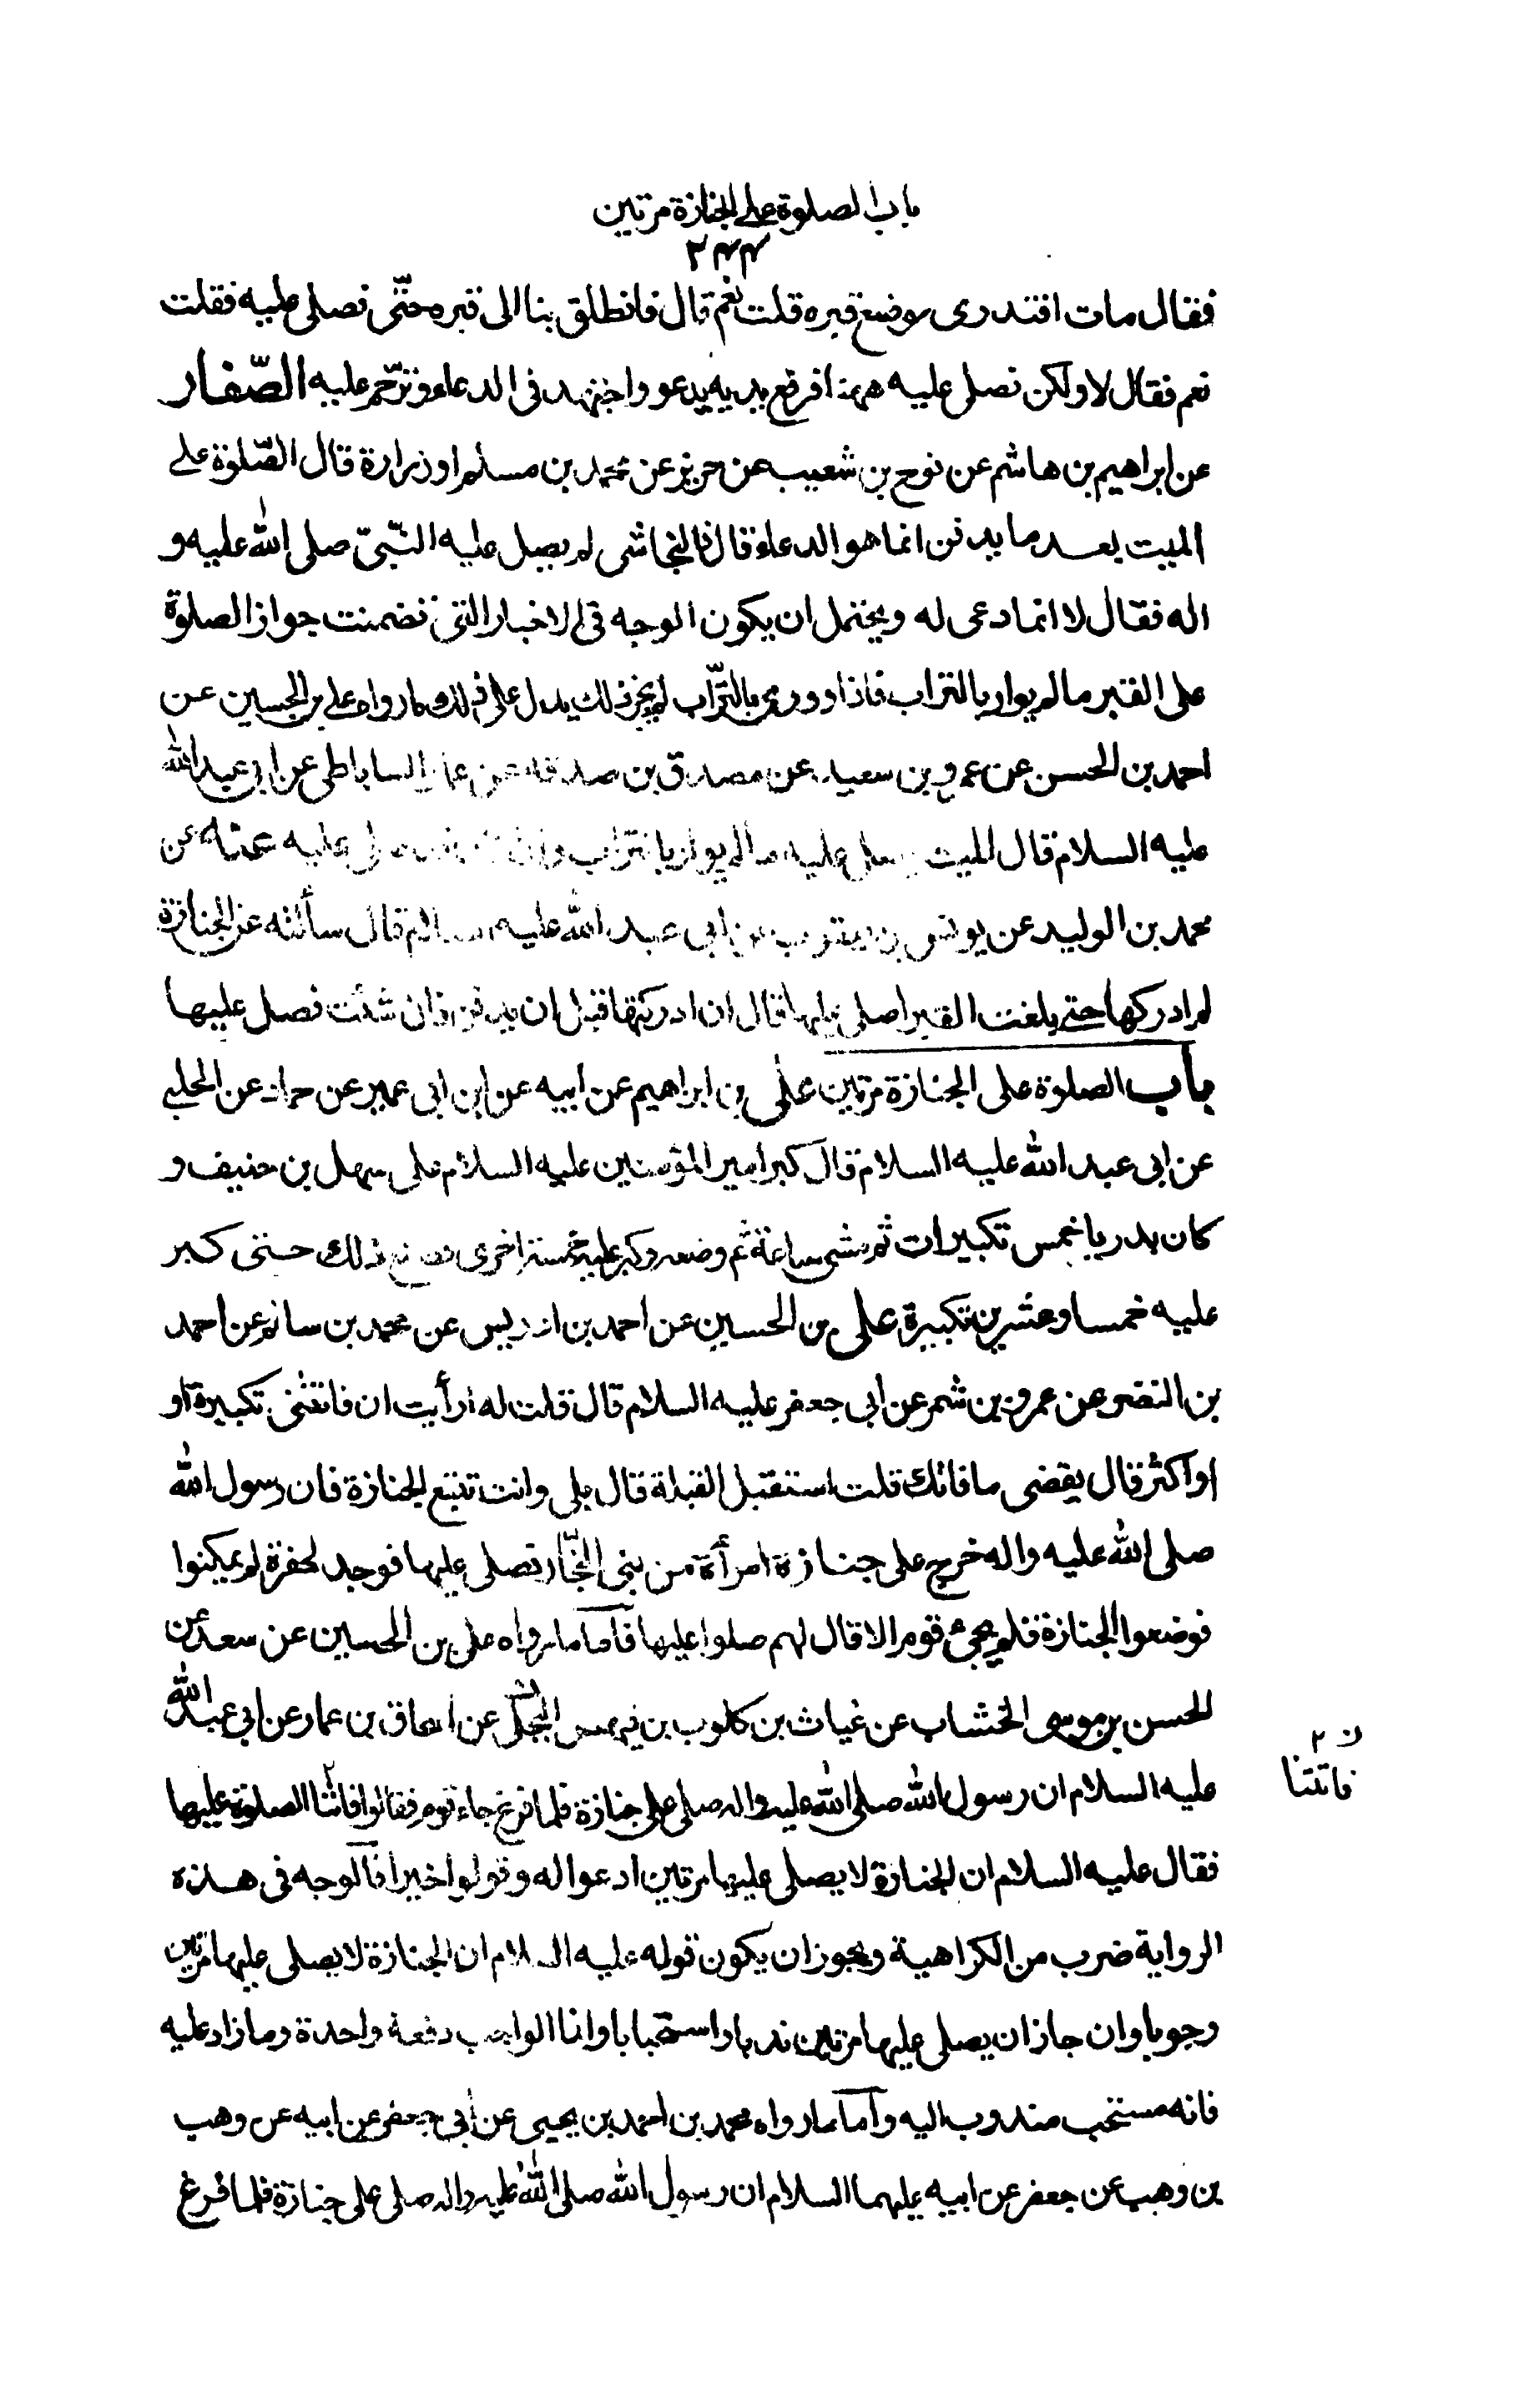 باب الصلوة على الجنازة مرتين
۲۴۴
فقال مات افتدرى موضع قبره قلت نعم قال فانطلق بنا الى قبره حتّى نصلى عليه فقلت
نعم فقال لا ولكن نصلى عليه ههنا فرفع يديه يدعو واجتهد فى الدعاء وترّحم عليه الصّفار
عن ابراهيم بن هاشم عن نوح بن شعيب عن حريز عن محمد بن مسلم او زرارة قال الصّلوة على
الميت بعد ما يدفن انما هو الدعاء قال فالنجاشى لم يصل عليه النّبىّ صلى الله عليه و
اله فقال لا انما دعى له ويحتمل ان يكون الوجه فى الاخبار التى تضمنت جواز الصلوة
على القبر ما لم يوار بالتراب فاذا وورى بالتّراب لم يجز ذلك يدل على ذلك ما رواه على بن الحسين عن
احمد بن الحسن عن عمرو بن سعيد عن مصدق بن صدقة عن عمار الساباطى عن ابى عبد الله
عليه السلام قال الميت يصلى عليه ما لم يوار بالتراب وان كان قد صلى عليه عنه عن
محمد بن الوليد عن يونس بن يعقوب عن ابى عبد الله عليه السلام قال سألته عن الجنازة
لم ادركها حتى بلغت القبر اصلى عليها قال ان ادركتها قبل ان يدفن فان شئت فصل عليها
باب الصلوة على الجنازة مرتين على بن ابراهيم عن ابيه عن ابن ابى عمير عن حماد عن الحلبى
عن ابى عبد الله عليه السلام قال كبر امير المؤمنين عليه السلام على سهل بن حنيف و
كان بدريا خمس تكبيرات ثم مشى ساعة ثم وضعه وكبر عليه خمسة اخرى فصنع ذلك حتى كبر
عليه خمسا وعشرين تكبيرة على بن الحسين عن احمد بن ادريس عن محمد بن سالم عن احمد
بن النضر عن عمرو بن شمر عن ابى جعفر عليه السلام قال قلت له ارأيت ان فاتتنى تكبيرة او
او اكثر قال يقضى ما فاتك قلت استقبل القبلة قال بلى وانت تتبع الجنازة فان رسول الله
صلى الله عليه واله خرج على جنازة امرأة من بنى النجّار فصلى عليها فوجد الحفرة لم يمكنوا
فوضعوا الجنازة فلم يجئ قوم الا قال لهم صلوا عليها فاما ما رواه على بن الحسين عن سعد عن
الحسن بن موسى الخشاب عن غياث بن كلوب بن فيهس البجلى عن اسحاق بن عمار عن ابى عبد الله
عليه السلام ان رسول الله صلى الله عليه واله صلى على جنازة فلما فرغ جاء قوم فقالوا فاتنا الصلوة عليها
فاتتنا ن ۲
فقال عليه السلام ان الجنازة لا يصلى عليها مرتين ادعوا له وقولوا خيرا فالوجه فى هذه
الرواية ضرب من الكراهية ويجوز ان يكون قوله عليه السلام ان الجنازة لا يصلى عليها مرتين
وجوبا وان جاز ان يصلى عليها مرتين ندبا واستحبابا وانما الواجب دفعة واحدة وما زاد عليه
فانه مستحب مندوب اليه واما ما رواه محمد بن احمد بن يحيى عن ابى جعفر عن ابيه عن وهب
بن وهب عن جعفر عن ابيه عليهما السلام ان رسول الله صلى الله عليه واله صلى على جنازة فلما فرغ